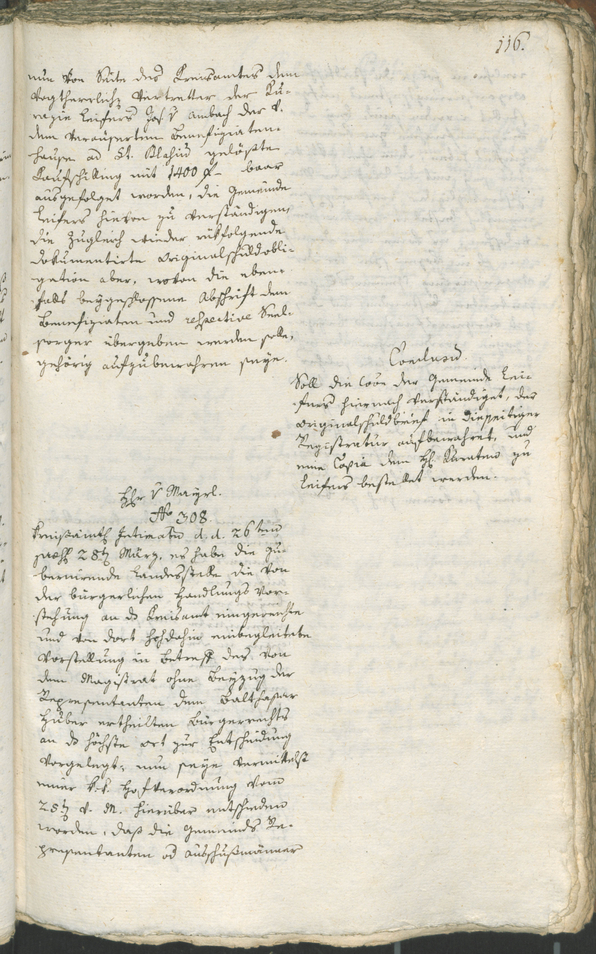 116.
nun von Seite des Kreisamtes dem
Vogtherrlichen Vertretter der Ku-
razie Leifers Jos. v Ambach der v.
dem veräuserten Benefiziaten-
hause ad St. Blasius gelößte
Kaufschilling mit 1400 f baar
ausgefolget worden, die Gemeinde
Leifers hievon zu verständigen,
die zugleich wieder rükfolgende
dokumentirte Originalschuldobli-
gation aber, wovon die eben-
falls beygeschlossene Abschrift dem
Benefiziaten und respective Seel-
sorger übergeben werden solle,
gehörig aufzubewahren seye.
Conclusum.
Soll die löbe der Gemeinde Lei-
fers hiernach verständiget, der
Originalschuldbrief in diesseitiger
Registratur aufbewahret, und
eine Copia dem H. Kuraten zu
Leifers bestellet werden.
Hr v Mayrl.
No 308
Kreisamtl. Intimatum d. d. 26ten
28ten März, es habe die Gu-
bernirende Landesstelle die von
der bürgerlichen Handlungs Vor-
stehung an das Kreisamt eingereichte
und von dort hochdahin einbegleitete
Vorstellung in betreff des von
dem Magistrat ohne Beyzug der
Repraesentanten dem Balthasar
Huber ertheilten Bürgerrechts
an das höchste ort zur Entscheidung
vorgelegt, nun seye vermittelst
einer k. k. Hofverordnung vom
28ten v. M. hierüber entschieden
worden, daß die Gemeinds Re-
praesentanten od Ausschußmänner